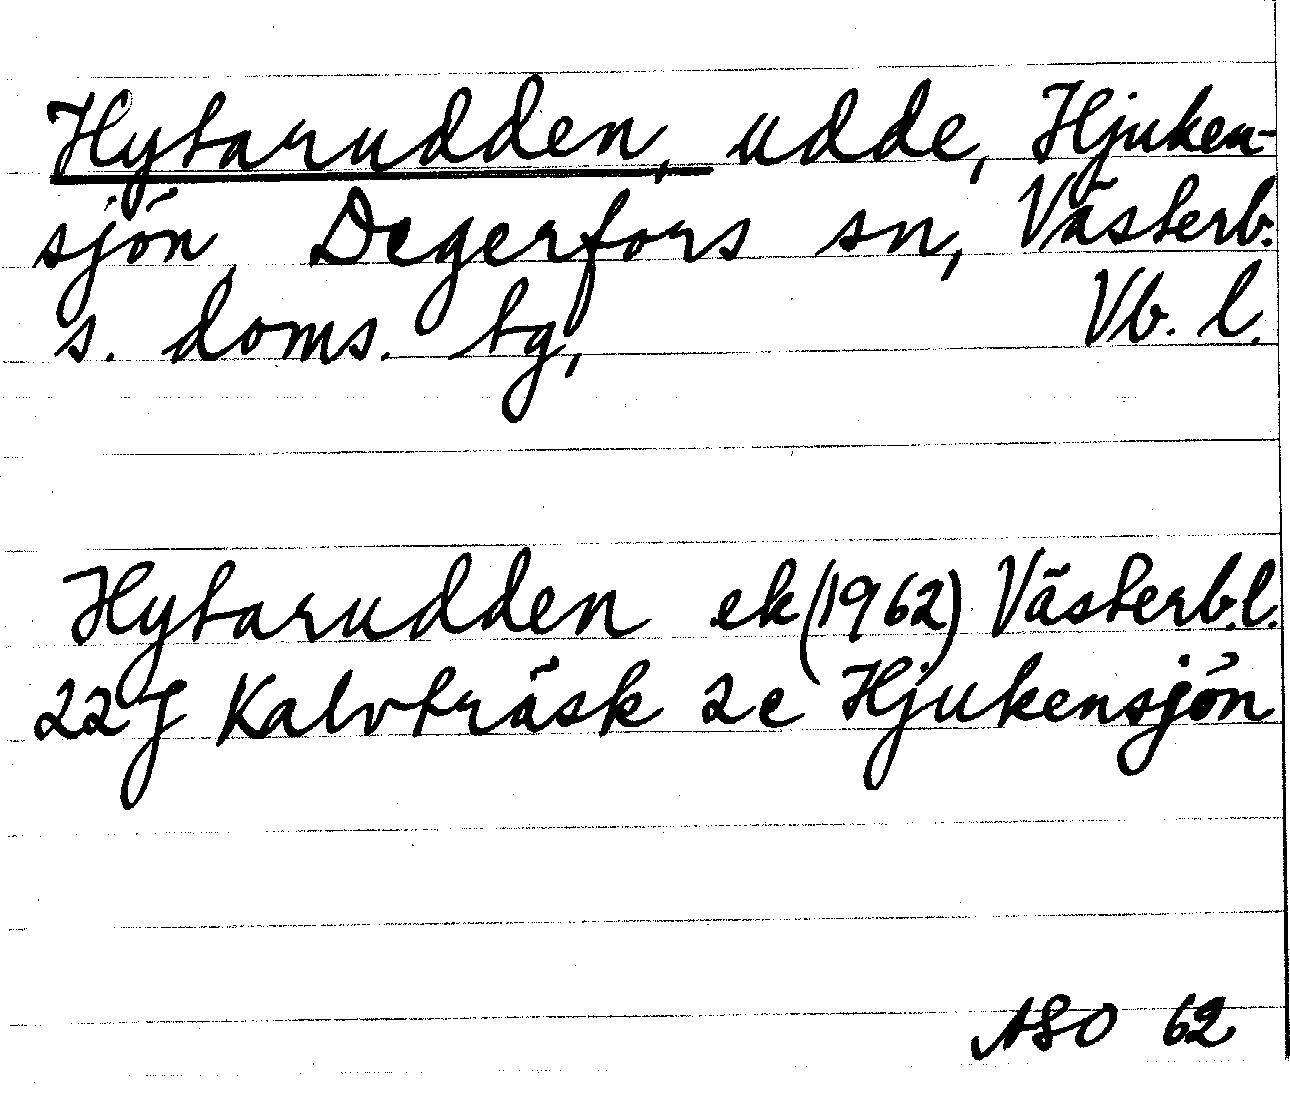 Hytarudden, udde, Hjuken-
sjön, Degerfors sn, Västerb.
s. doms. tg, Vb. l.
Hytarudden ek (1962) Västerb.l.
22J Kalvträsk 2e Hjukensjön
ASO 62